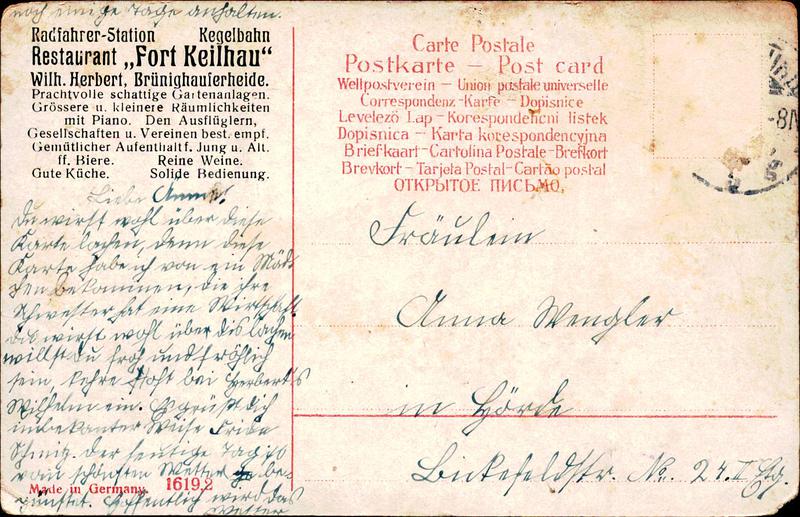 noch einige Tage anhalten.
Radfahrer-Station Kegelbahn
Restaurant „Fort Keilhau“
Wilh. Herbert, Brünighauferheide.
Prachtvolle schattige Gartenanlagen.
Grössere u. kleinere Räumlichkeiten
mit Piano. Den Ausflüglern,
Gesellschaften u. Vereinen best. empf.
Gemütlicher Aufenthalt f. Jung u. Alt.
ff. Biere. Reine Weine.
Gute Küche. Solide Bedienung.
Liebe Anna!
Du wirst wohl über diese
Karte lachen, denn diese
Karte habe ich von ein Mäd
chen bekommen, die ihre
Schwester hat eine Wirtschaft
das wirst wohl über dis lachen
willst Du froh und fröhlich
sein, kehre stoht bei Herbert's
Wilhelm ein. Es grüßt dich
unbekanter Weise Frida
Schmitz. Der heutige Tag ist
vom schönsten Wetter be
günstet. Hoffentlich wird das
Wetter
Made in Germany. 1619,2
Carte Postale
Postkarte – Post card
Weltpostverein – Union postale universelle
Correspondenz-Karte – Dopisnice
Levelező Lap – Korespondencni listek
Dopisnica – Karta korespondencyjna
Briefkaart – Cartolina Postale – Brefkort
Brevkort – Tarjeta Postal – Cartão postal
ОТКРЫТОЕ ПИСЬМО.
Fräulein
Anna Wengler
in Hörde
Bickefeldstr. No. 24. II Etg.
-8N